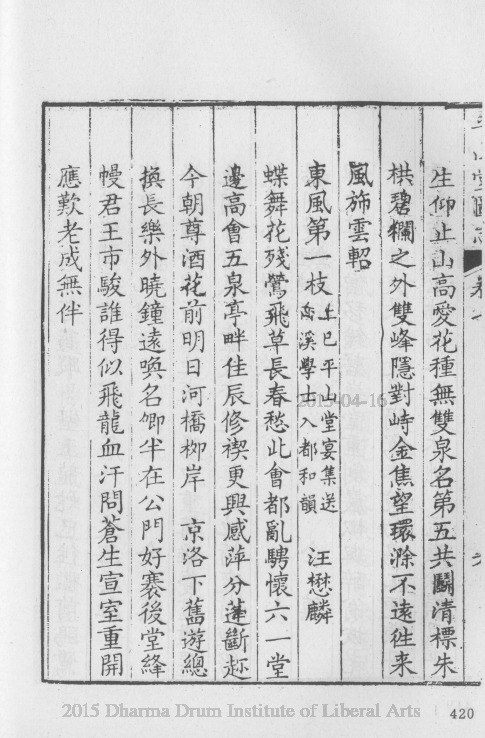 生仰止山高愛花種無雙泉名第五共鬭清標朱
栱碧欄之外雙峰隱對峙金焦望環滁不遠徃来
風斾雲軺
東風第一枝 上巳平山堂宴集送 汪懋麟
喬溪學士入都和韻
蝶舞花殘鶯飛草長春愁此會都亂騁懷六一堂
邉高會五泉亭畔佳辰修禊更興感萍分蓬斷趂
今朝尊酒花前明日河橋栁岸 京洛下舊遊總
換長樂外曉鐘遠喚名卿半在公門好賽後堂絳
幔君王市駿誰得似飛龍血汗問蒼生宣室重開
應歎老成無伴
2015-04-16
2015 Dharma Drum Institute of Liberal Arts
420